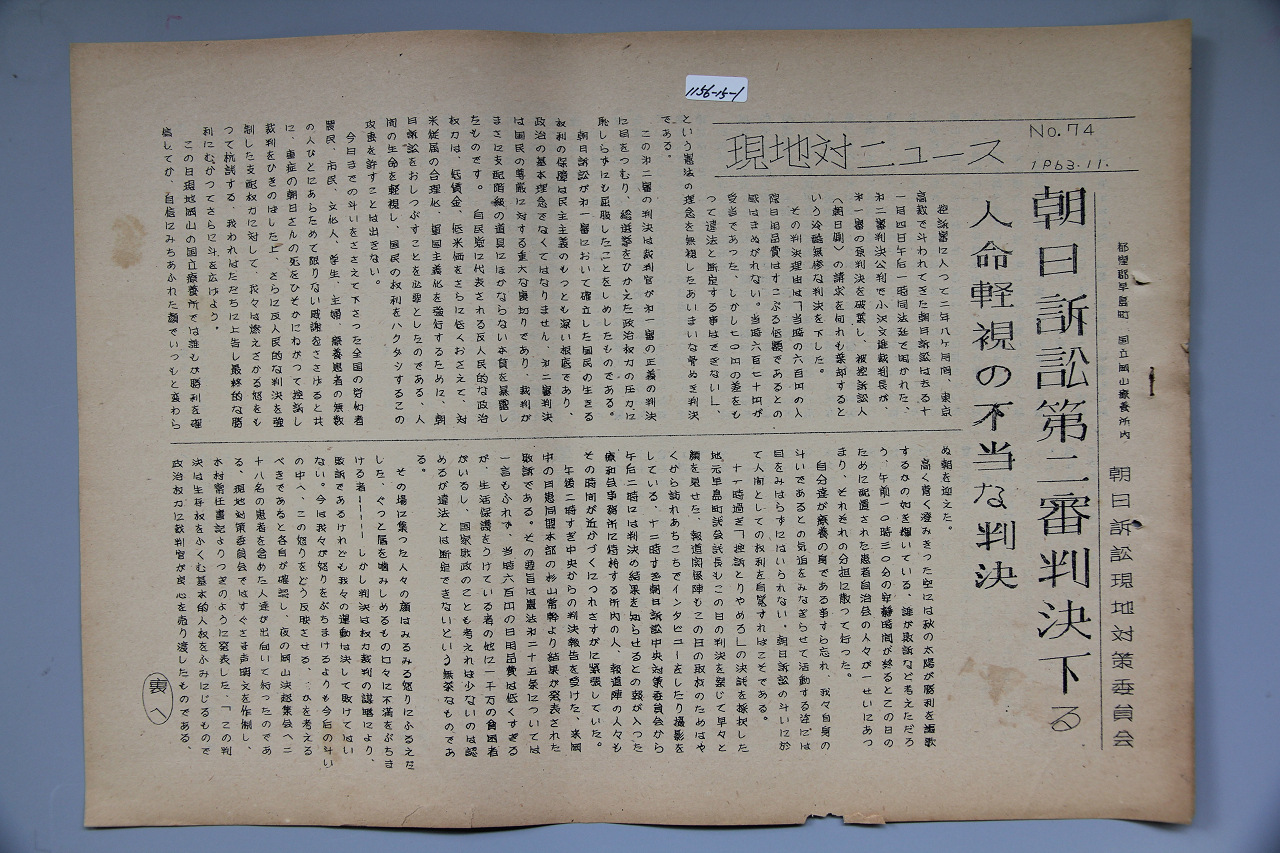 1156-15-1
現地対ニュース
No.74
1963.11.
都窪郡早島町 国立岡山療養所内 朝日訴訟現地対策委員会
朝日訴訟第二審判決下る
人命軽視の不当な判決
控訴審に入つて二年八ケ月間、東京
高裁で斗われてきた朝日訴訟は去る十
一月四日午后一時同法廷で開かれた、
第二審判決公判で小沢文雄裁判長が、
第一審の原判決を破棄し、被控訴人
(朝日側)の請求を何れも棄却すると
いう冷酷無惨な判決を下した。
その判決理由は「当時の六百円の人
院日用品費はすこぶる低額であるとの
感はまぬがれない。当時六百七十円が
妥当であった、しかし七〇円の差をも
つて違法と断定する事はできない」、
という憲法の理念を無視したあいまいな骨ぬき判決
である。
この第二審の判決は裁判官が第一審の正義の判決
に目をつむり、総選挙をひかえた政治权力の圧力に
恥しらずにも屈服したことをしめしたものである。
朝日訴訟が第一審において確立した国民の生きる
权利の保障は民主主義のもっとも深い根底であり、
政治の基本理念でなくてはなりません、第二審判決
は国民の尊厳に対する重大な裏切りであり、裁判が
まさに支配階級の道具にほかならない本質を暴露し
たものです。 自民党に代表される反人民的な政治
权力は、低賃金、低米価をさらに低くおさえて、対
米従属の合理化、軍国主義化を強行するために、朝
日訴訟をおしつぶすことを必要としたのである、人
間の生命を軽視し、国民の权利をハクダツするこの
攻妻を許すことは出きない。
今日までの斗いをささえて下さった全国の労仂者
農民、市民、文化人、学生、主婦、療養患者の無数
の人ひとにあらためて限りない感謝をささげると共
に、重症の朝日さんの死をひそかにねがつて控訴し
裁判をひきのばした上、さらに反人民的な判決を強
制した支配权力に対して、我々は燃えさかる怒をも
つて抗議する、我われはただちに上告し最終的な勝
利にむかつてさらに斗を広げよう。
この日現地岡山の国立療養所では誰もが勝利を確
信してか、自信にみちあふれた顔でいつもと変わら
ぬ朝を迎えた。
高く青く澄みきった空には秋の太陽が勝利を謳歌
するかの如き輝いている、誰が敗訴など考えただろ
う、午前一〇時三〇分の安静時間が終るとこの日の
ために配置された患者自治会の人々が一せいにあつ
まり、それぞれの分担に散って行った。
自分達が療養の身である事すら忘れ、我々自身の
斗いであるとの気迫をみなぎらせて活動する姿には
目をみはらずにはいられない、朝日訴訟の斗いに於
て人間としての权利を自覚すればこそである。
十一時過ぎ「控訴とりやめろ」の決議を採択した
地元早島町議会議長もこの日の判決を案じて早々と
顔を見せた、報道関係陣もこの日の取材のためはや
くから訪れあちこちでインタビューをしたり撮影を
している、十二時すぎ朝日訴訟中央対策委員会から
午后二時には判決の結果を知らせるとの報が入った
療和会事務所に待機する所内の人人、報道陣の人々も
その時間が近かづくにつれさすがに緊張していた。
午後二時すぎ中央からの判決報告を受けた、来岡
中の日患同盟本部の杉山常幹より結果が発表された
敗訴である。その要旨は憲法第二十五条については
一言もふれず、当時六百円の日用品費は低くすぎる
が、生活保護をうけている者の他に一千万の貧困者
がいるし、国家財政のことも考えれば少ないのは認
めるが違法とは断定できないという無茶なものであ
る。
その場に集った人々の顔はみるみる怒りにふるえだ
した、ぐっと唇を噛みしめるもの口々に不満をぶちま
ける者ーーーしかし判決は权力裁判の謀略により、
敗訴であるけれども我々の運動は決して敗けてはい
ない。今は我々が怒りをぶちまけるよりも今后の斗い
の中へ、この怒りをどう反映させる、かを考える
べきであると各自が確認し、夜の岡山決起集会へ二
十八名の患者を含めた人達が出向いて行ったのであ
る、現地対策委員会ではすぐさま声明文を作制し、
木村常任書記よりつぎのように発表した、「この判
決は生存权をふくむ基本的人权をふみにじるもので
政治权力に裁判官が良心を売り渡したものである、
(裏へ)